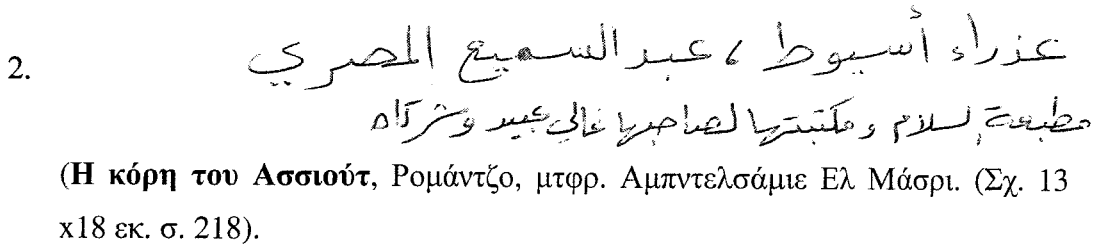 2. عذراء أسيوط ، عبد السميع المصري
مطبعة السلام ومكتبتها لصاحبها غالي عبيد وشركاه
(Η κόρη του Ασσιούτ, Ρομάντζο, μτφρ. Αμπντελσάμιε Ελ Μάσρι. (Σχ. 13
x18 εκ. σ. 218).